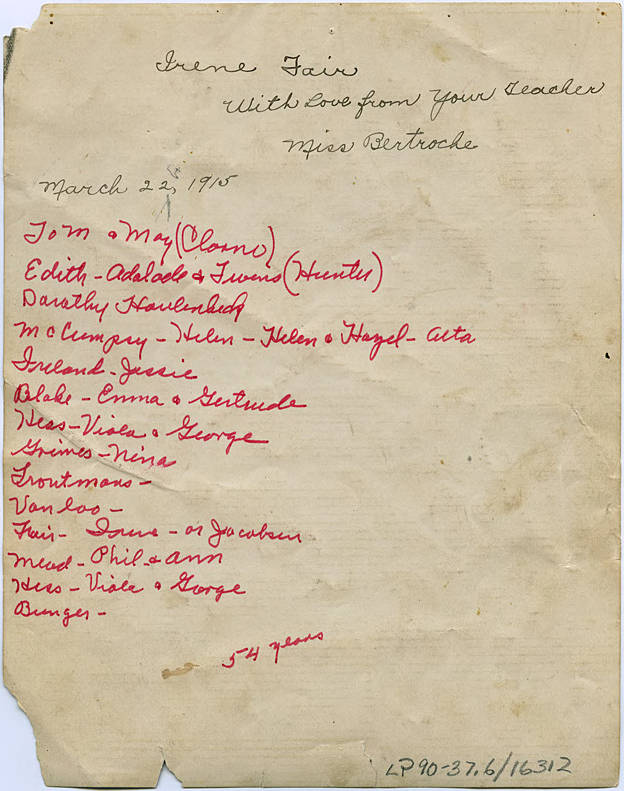 Irene Fair
With Love from Your Teacher
Miss Bertroche
March 22, 1915
Tom & May (Clarno)
Edith - Adalade & Twins (Hunter)
Dorathy Houlenbeck
McCumpsy - Helen - Helen & Hazel - Alta
Ireland - Jessie
Blake - Emma & Gertrude
Hess - Viola & George
Grimes - Nina
Troutmans -
Vanloo -
Fair - Irene - or Jacobsen
Mead - Phil & Ann
Hess - Viola & George
Bunger -
54 years
LP90-37.6/16312